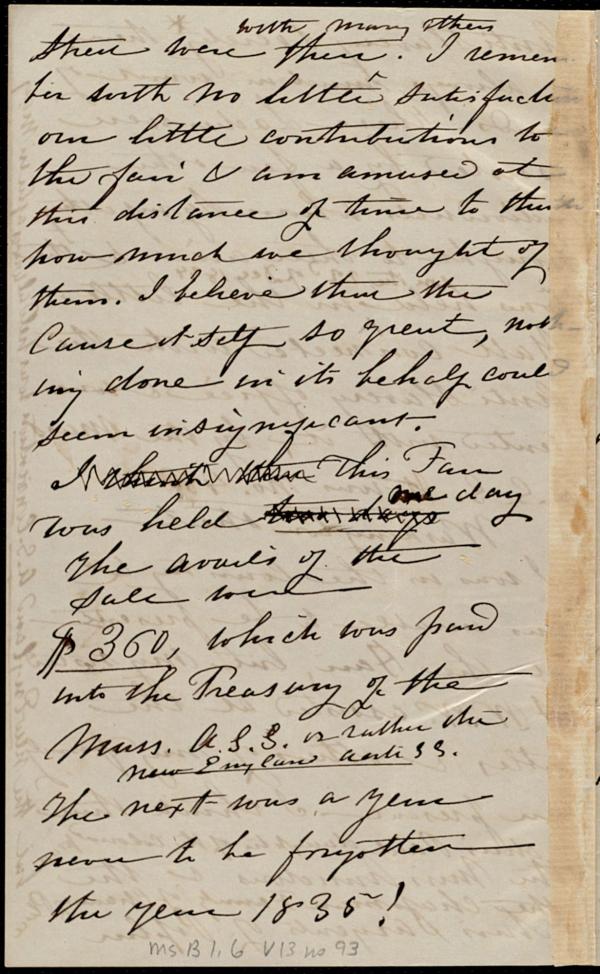 with many others
Street were there. I remem
ber with no little satisfacti
our little contributions to
the fair & am amused at
this distance of time to thin
how much we thought of
them. I believe that the
Cause itself so great, noth-
ing done in its behalf coul
seem insignificant.
I think then This Fair
was held two days one day
The avails of the
Sale were
$360, which was paid
into the Treasury of the
Mass. A.S.S. or rather the
New England Anti SS.
The next was a year
never to be forgotten
the year 1835!
Ms B 1.6 V13 no 93